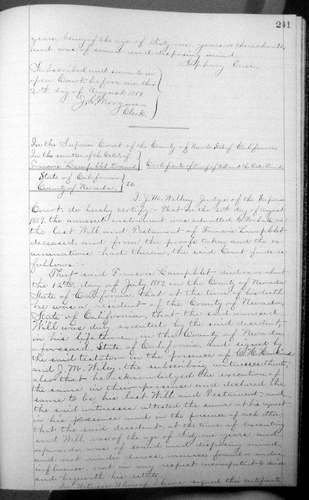 241
years, being of the age of Sixty one years or thereabouts
and was of sound and disposing mind
Subscribed and sworn to in
open Court before me this
20th day of August 1887
J. L. Morgan
Clerk
In the Superior Court of the County of Nevada State of California
In the matter of the Estate of
Deceased Certificate of Proof of Will and the Facts Found
State of California
County of Nevada ss
I, J. M. Walling Judge of the Superior
Court, do hereby certify - That on the 20th day of August
1887, the annexed instrument was admitted to Probate as
the last Will and Testament of Francis
deceased and from the proofs taken and the ex-
aminations had therein, the said Court finds as
follows:
That said Francis died on or about
the 12th day of July 1887, in the County of Nevada
State of California, That at the time of his death
he was a resident of the County of Nevada,
State of California, that the said annexed
Will was duly executed by the said decedent,
in his lifetime in the County of Nevada
State of California, and signed by
the said testator in the presence of
and J. M. the subscribing witnesses thereto,
also that he acknowledged the execution of
the same in their presence and declared the
same to be his last Will and Testament, and
the said witnesses attested the same at his request
in his presence and in the presence of each other
that the said decedent, at the time of executing
said Will was of the age of Sixty one years and
upwards was of sound and disposing mind
and not under duress, menace, fraud or undue
influence, nor in any respect incompetent to devise
and bequeath his estate.
In Witness Whereof I have signed this certificate